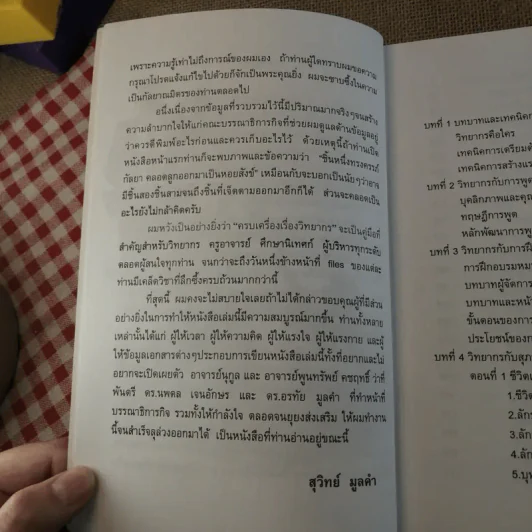 เพราะความรู้เท่าไม่ถึงการณ์ของผมเอง ถ้าท่านผู้ใดทราบผมขอความ
กรุณาโปรดแจ้งแก้ไขไปด้วยก็จักเป็นพระคุณยิ่ง ผมจะซาบซึ้งในความ
เป็นกัลยาณมิตรของท่านตลอดไป
อนึ่งเนื่องจากข้อมูลที่รวบรวมไว้นี้มีปริมาณมากจริงๆจนสร้าง
ความลำบากใจให้แก่คณะบรรณาธิการกิจที่ช่วยผมดูแลด้านข้อมูลอยู่
ว่าควรตีพิมพ์อะไรก่อนและควรเก็บอะไรไว้ ด้วยเหตุนี้ถ้าท่านเปิด
หนังสือหน้าแรกท่านก็จะพบภาพและข้อความว่า "ชิ้นหนึ่งทรงครรภ์
กัลยา คลอดลูกออกมาเป็นหอยสังข์" เหมือนกับจะบอกเป็นนัยๆว่าอาจ
มีชิ้นสองชิ้นสามจนถึงชิ้นที่เจ็ดตามออกมาอีกก็ได้ ส่วนจะคลอดเป็น
อะไรยังไม่กล้าคิดครับ
ผมหวังเป็นอย่างยิ่งว่า "ครบเครื่องเรื่องวิทยากร" จะเป็นคู่มือที่
สำคัญสำหรับวิทยากร ครูอาจารย์ ศึกษานิเทศก์ ผู้บริหารทุกระดับ
ตลอดผู้สนใจทุกท่าน จนกว่าจะถึงวันหนึ่งข้างหน้าที่ files ของแต่ละ
ท่านมีเคล็ดวิชาที่ลึกซึ้งครบถ้วนมากกว่านี้
ที่สุดนี้ ผมคงจะไม่สบายใจเลยถ้าไม่ได้กล่าวขอบคุณผู้ที่มีส่วน
อย่างยิ่งในการทำให้หนังสือเล่มนี้มีความสมบูรณ์มากขึ้น ท่านทั้งหลาย
เหล่านั้นได้แก่ ผู้ให้เวลา ผู้ให้ความคิด ผู้ให้แรงใจ ผู้ให้แรงกาย และผู้
ให้ข้อมูลเอกสารต่างๆประกอบการเขียนหนังสือเล่มนี้ทั้งที่อยากและไม่
อยากจะเปิดเผยตัว อาจารย์นุกูล และ อาจารย์พูนทรัพย์ คชฤทธิ์ ว่าที่
พันตรี ดร.นพดล เจนอักษร และ ดร.อรทัย มูลคำ ที่ทำหน้าที่
บรรณาธิการกิจ รวมทั้งให้กำลังใจ ตลอดจนยุยงส่งเสริม ให้ผมทำงาน
นี้จนสำเร็จลุล่วงออกมาได้ เป็นหนังสือที่ท่านอ่านอยู่ขณะนี้
สุวิทย์ มูลคำ
บทที่ 1 บทบาทและเทคนิค
วิทยากรคือใคร
เทคนิคการเตรียมตั
เทคนิคการสร้างแร
บทที่ 2 วิทยากรกับการพูด
บุคลิกภาพและคุณ
ทฤษฎีการพูด
หลักพัฒนาการพู
บทที่ 3 วิทยากรกับการฝึ
การฝึกอบรมหม
บทบาทผู้จัดการ
บทบาทและหน้
ขั้นตอนของการ
ประโยชน์ของก
บทที่ 4 วิทยากรกับสุภ
ตอนที่ 1 ชีวิตเ
1.ชีวิต
2.ลักษ
3.ลัก
4.ลัก
5.บุ